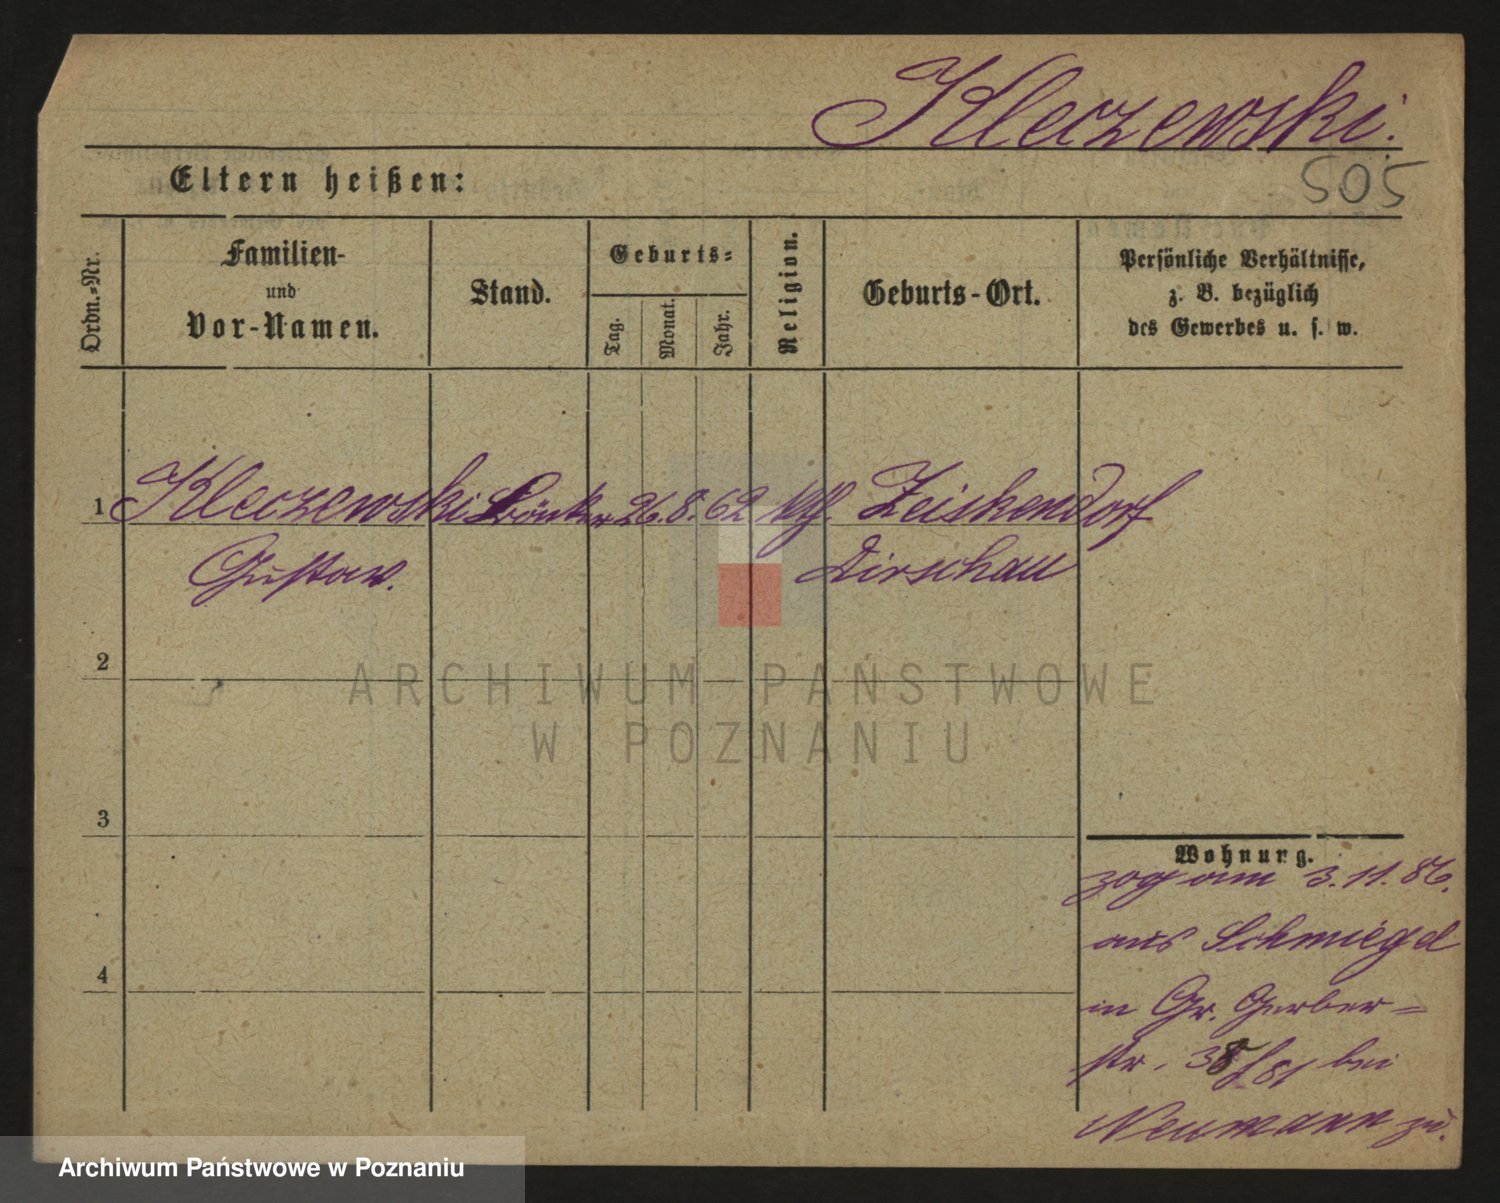 Kleczewski.
505
Eltern heißen:
Ordn.-Nr.
Familien-
und
Vor-Namen.
Stand.
Geburts-
Tag.
Monat.
Jahr.
Religion.
Geburts-Ort.
Persönliche Verhältnisse,
z. B. bezüglich
des Gewerbes u. s. w.
1 Kleczewski 26. 8. 62 kth. Zeiskendorf
Gustav. Dirschau
2
3
4
Wohnung.
zog am 3. 11. 86.
aus Schmiegel
in Gr. Gerber=
str. 38 bei
Neumann zu.
ARCHIWUM PAŃSTWOWE
W POZNANIU
Archiwum Państwowe w Poznaniu